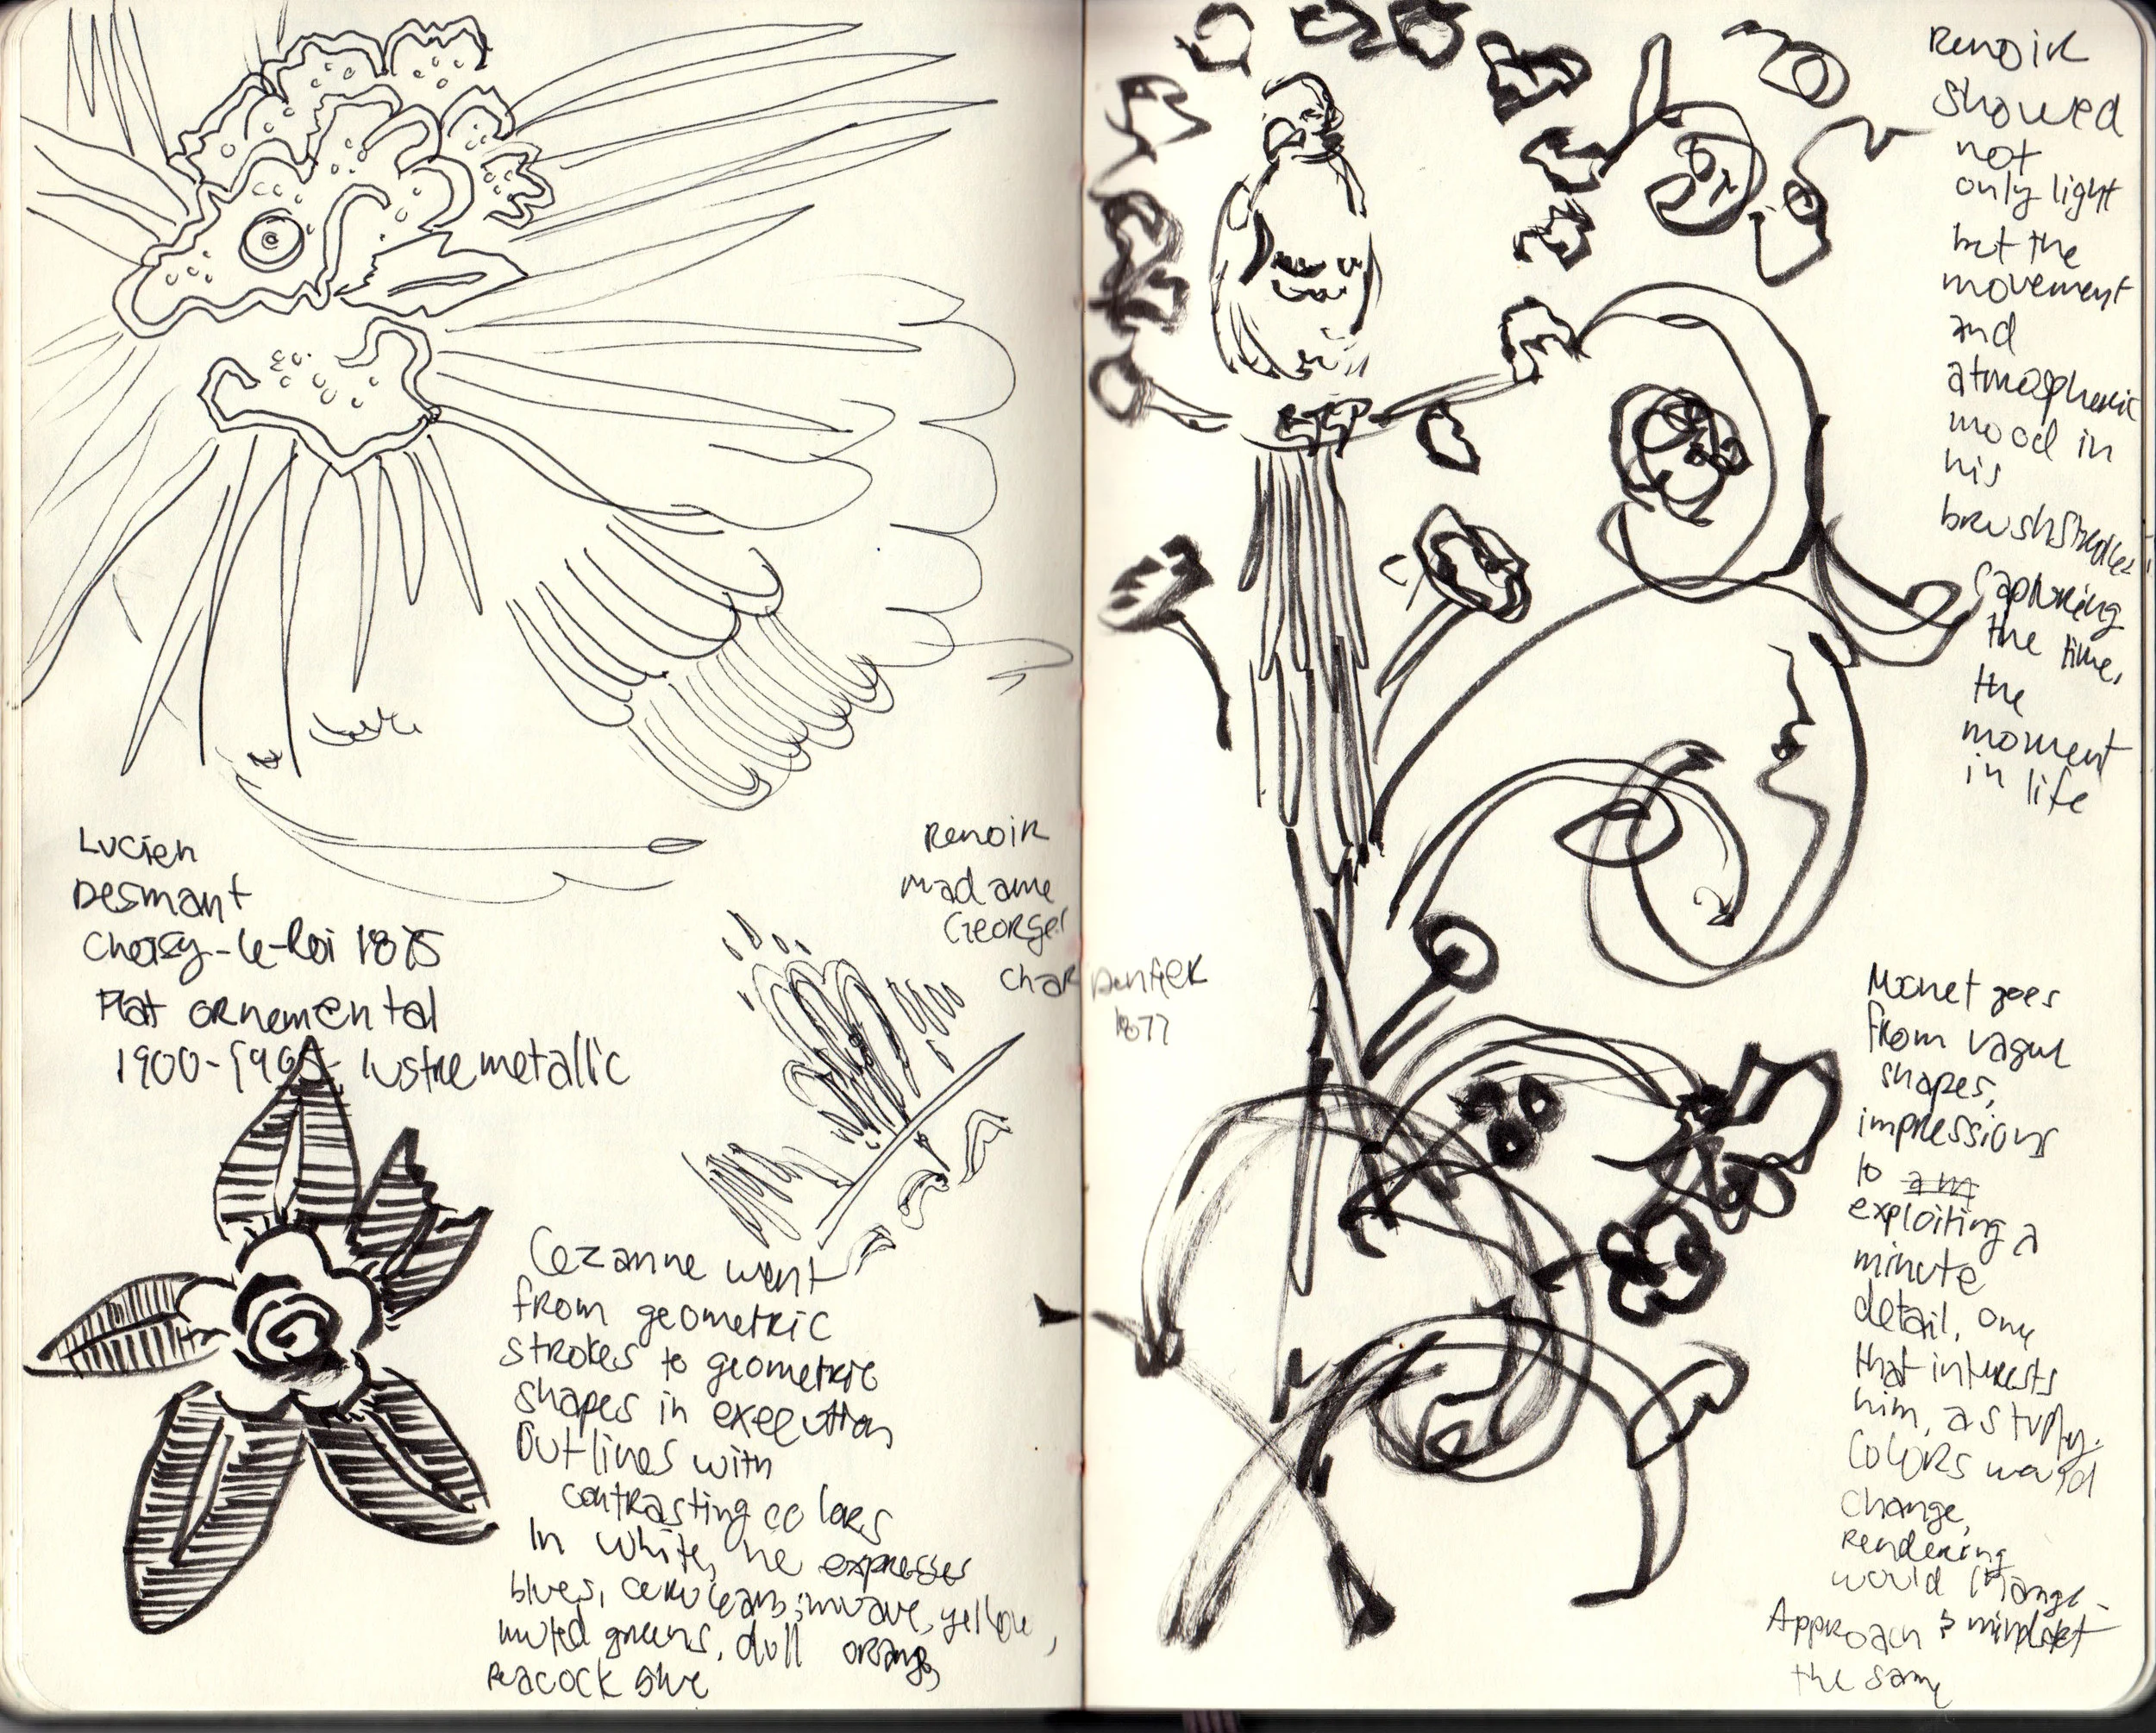 Lucien
Desmant
Choisy-le-Roi 1875
Plat ornemental
1900-1905 lustre metallic
Renoir
Madame
Georges
Char
Cezanne went
from geometric
strokes to geometric
shapes in execution
Outlines with
contrasting colors
In white, he expresses
blues, ceruleans, mauve, yellow,
muted greens, dull orange,
Peacock blue
Renoir
showed
not
only light
but the
movement
and
atmospheric
mood in
his
brushstrokes,
capturing
the time,
the
moment
in life
pentier
1877
Monet goes
from vague
shapes,
impressions
to am
exploiting a
minute
detail, one
that interests
him, a study.
Colors would
change,
rendering
would change.
Approach & mindset
the same